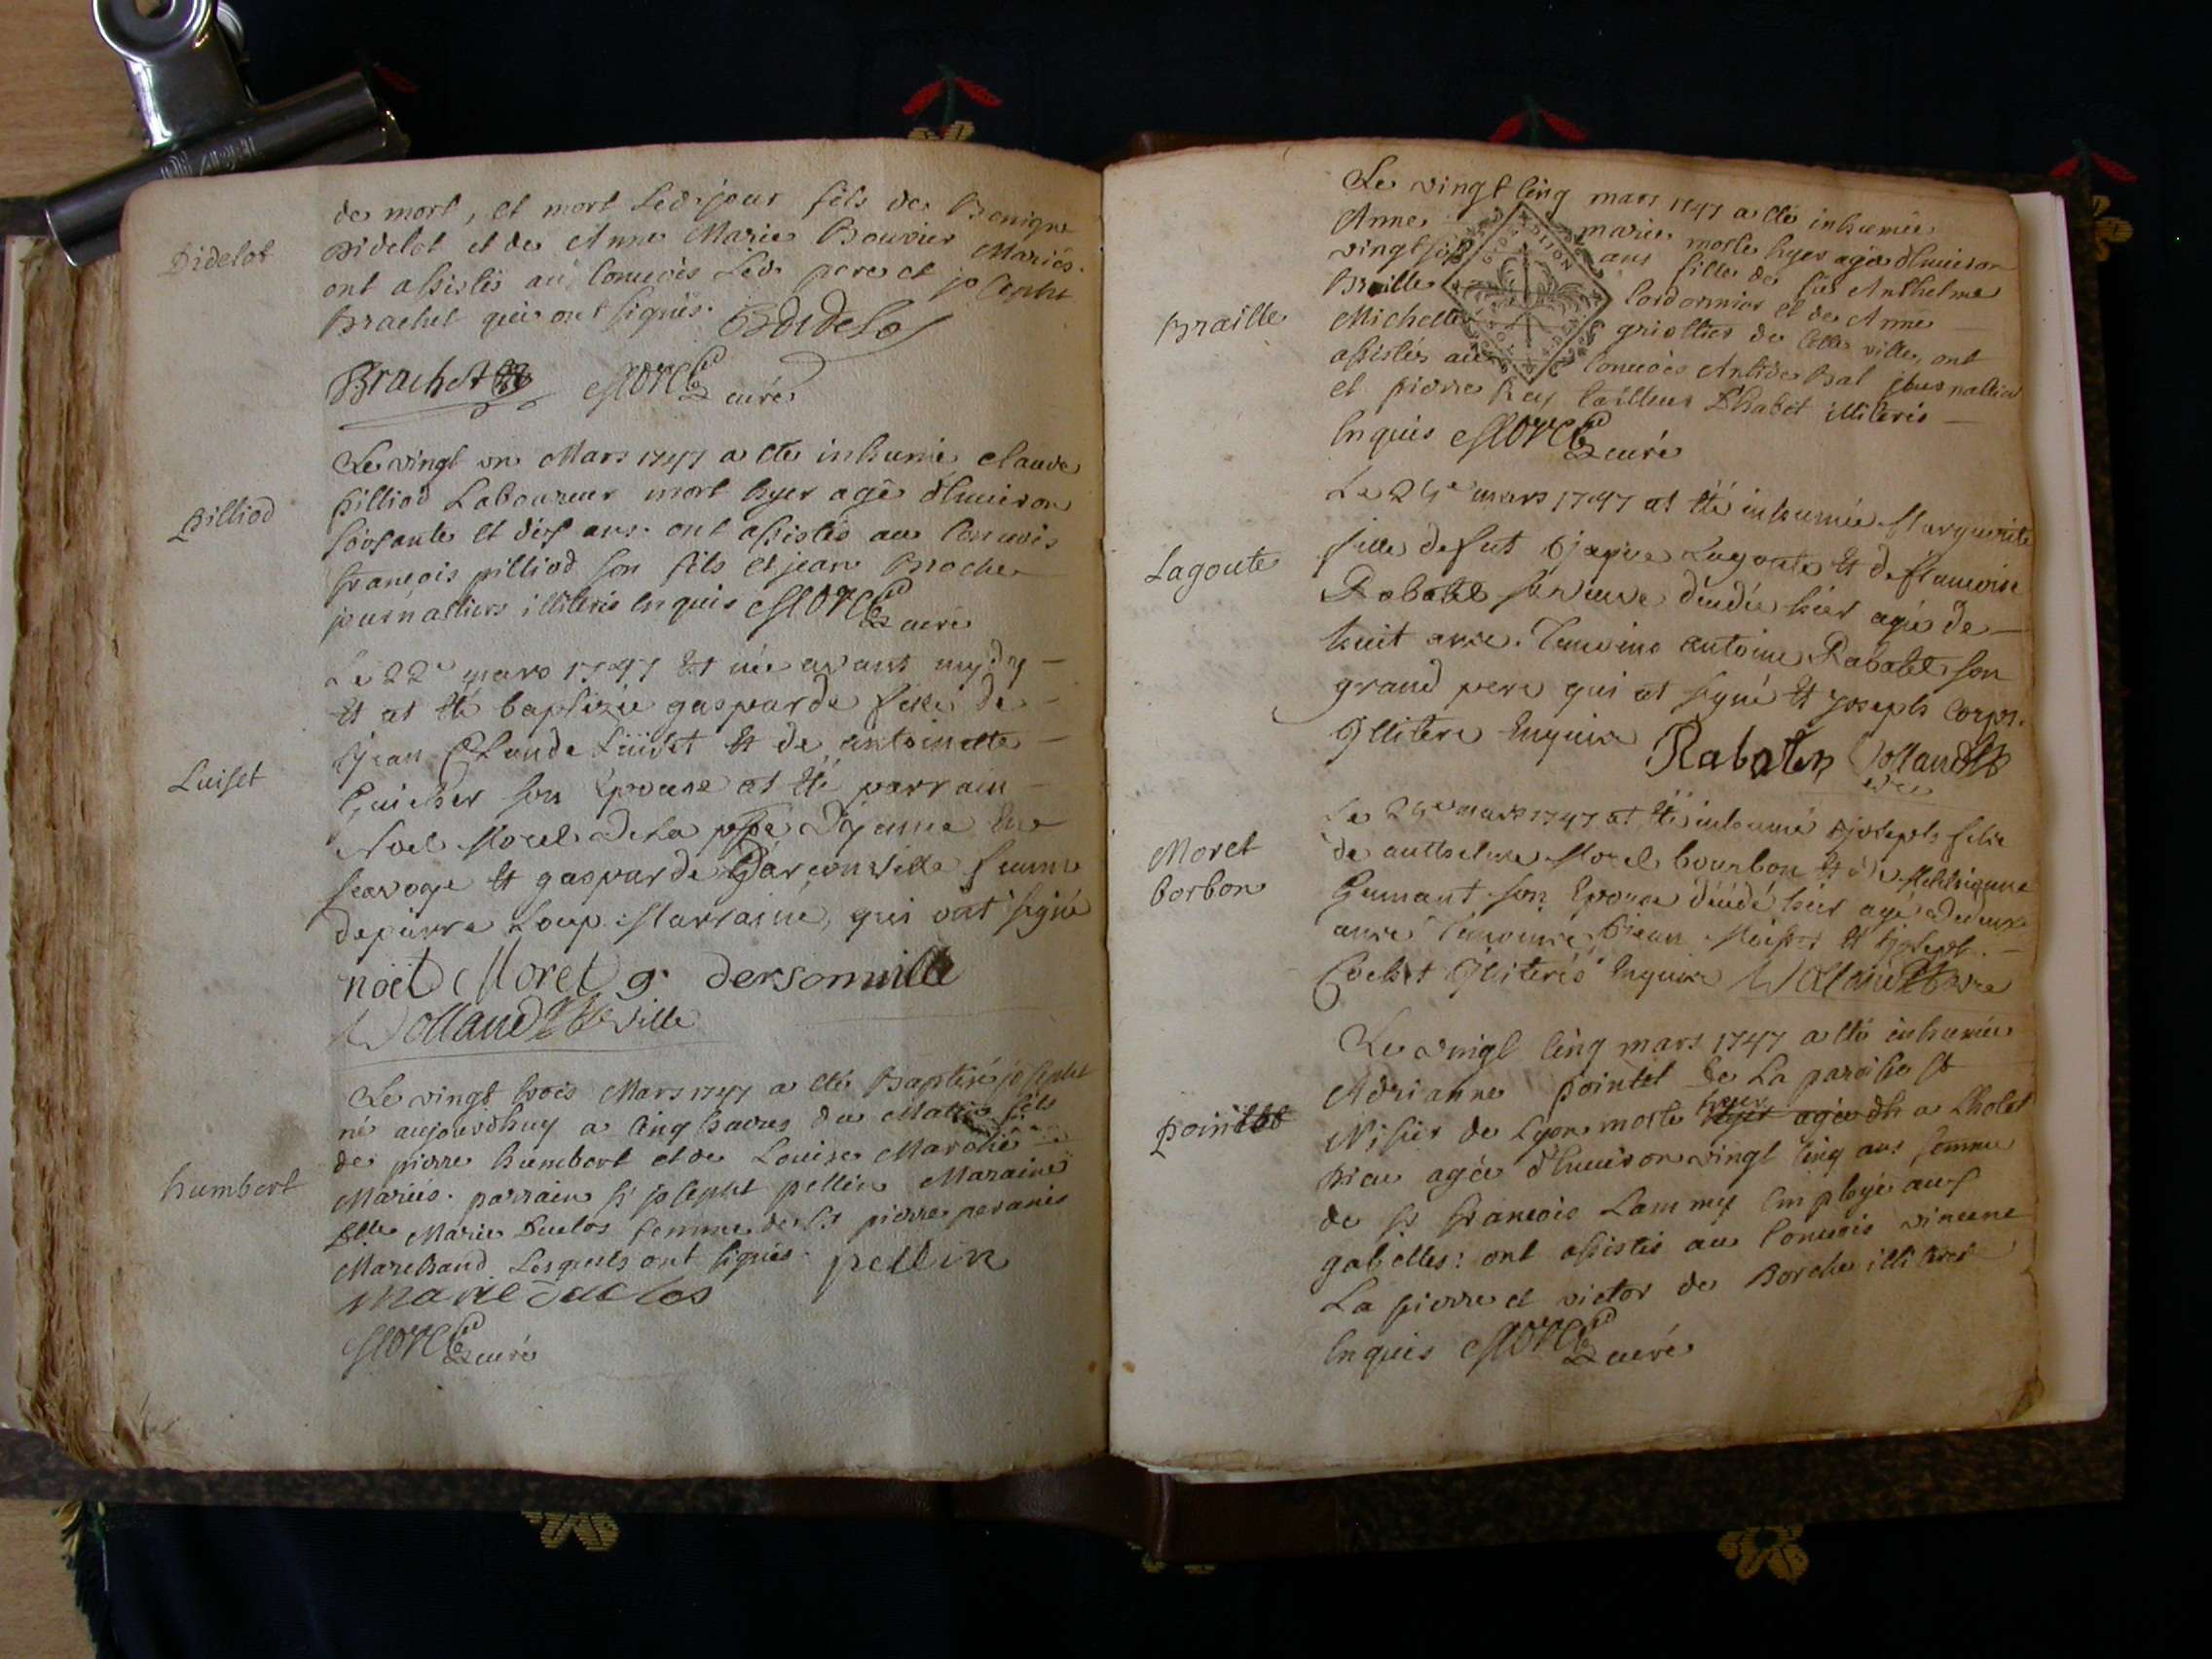 Didelot
de mort, et mort led. jour fils de Benigne
Didelot et de Anne Marie Bouvier Mariés.
ont assistés au Convois led. pere et joseph
Brachet qui ont signés. BDidelot
Brachet Morel curé
Pilliod
Le vingt un Mars 1747 a eté inhumé claude
pilliod Laboureur mort hyer agé d'Environ
soixante et dix ans. ont assistés au Convois
françois pilliod son fils et jean Broche
journalliers illiterés Enquis Morel curé
Luiset
Le 22e mars 1747 Et née avant mydy
Et at été baptizée gasparde fille de
Jean Claude Luiset Et de antoinette
Guicher son Epouse at été parrain
Noel Morel de la
et gasparde femme
de pierre Loup Marraine, qui ont signé
noel Morel g. dersonville
Volland vre
humbert
Le vingt trois Mars 1747 a eté Baptisé joseph
né aujourdhuy a Cinq heures du Matin fils
de pierre humbert et de Louise
Mariés. parrain Sr joseph pellin Maraine
Dlle Marie Duclos femme de Sr pierre
Marchand Lesquels ont signés. pellin
marie duclos
Morel curé
Braille
Le vingt Cinq mars 1747 a eté inhumée
Anne marie morte hyer agée d'Environ
vingt six ans fille de fut Anthelme
Braille Cordonnier et de Anne
Michelle griottier de Cette ville, ont
assistés au Convois Antide Bal journallier
et pierre Rey tailleur D'habit illiterés
Enquis Morel curé
GEN DIJON
Lagoute
Le 25e mars 1747 at été inhumée Marguerite
fille de fut Lagoute Et de françoise
Rabatel sa veuve décédée hier agée de
huit ans. Temoins antoine Rabatel son
grand pere qui at signé Et joseph Corps.
Illitere Enquis Rabaten Volland
vre
Moret
borbon
Le 25e mars 1747 at été inhumé joseph fils
de anthelme Morel bourbon Et de
Gumant son Epouse décédé hier agé de deux
ans Temoins Et joseph
Cochet Illiterés Enquis Volland vre
pointet
Le vingt Cinq mars 1747 a eté inhumée
Adrianne pointet de La paroisse St
Nisier de Lyon morte hyer agée dh a Lhotel
Dieu agée d'Environ vingt Cinq ans femme
de Sr françois Lammy Employé aux
gabelles: ont assistés au Convois vincent
La pierre et victor de Borche illiterés
Enquis Morel curé